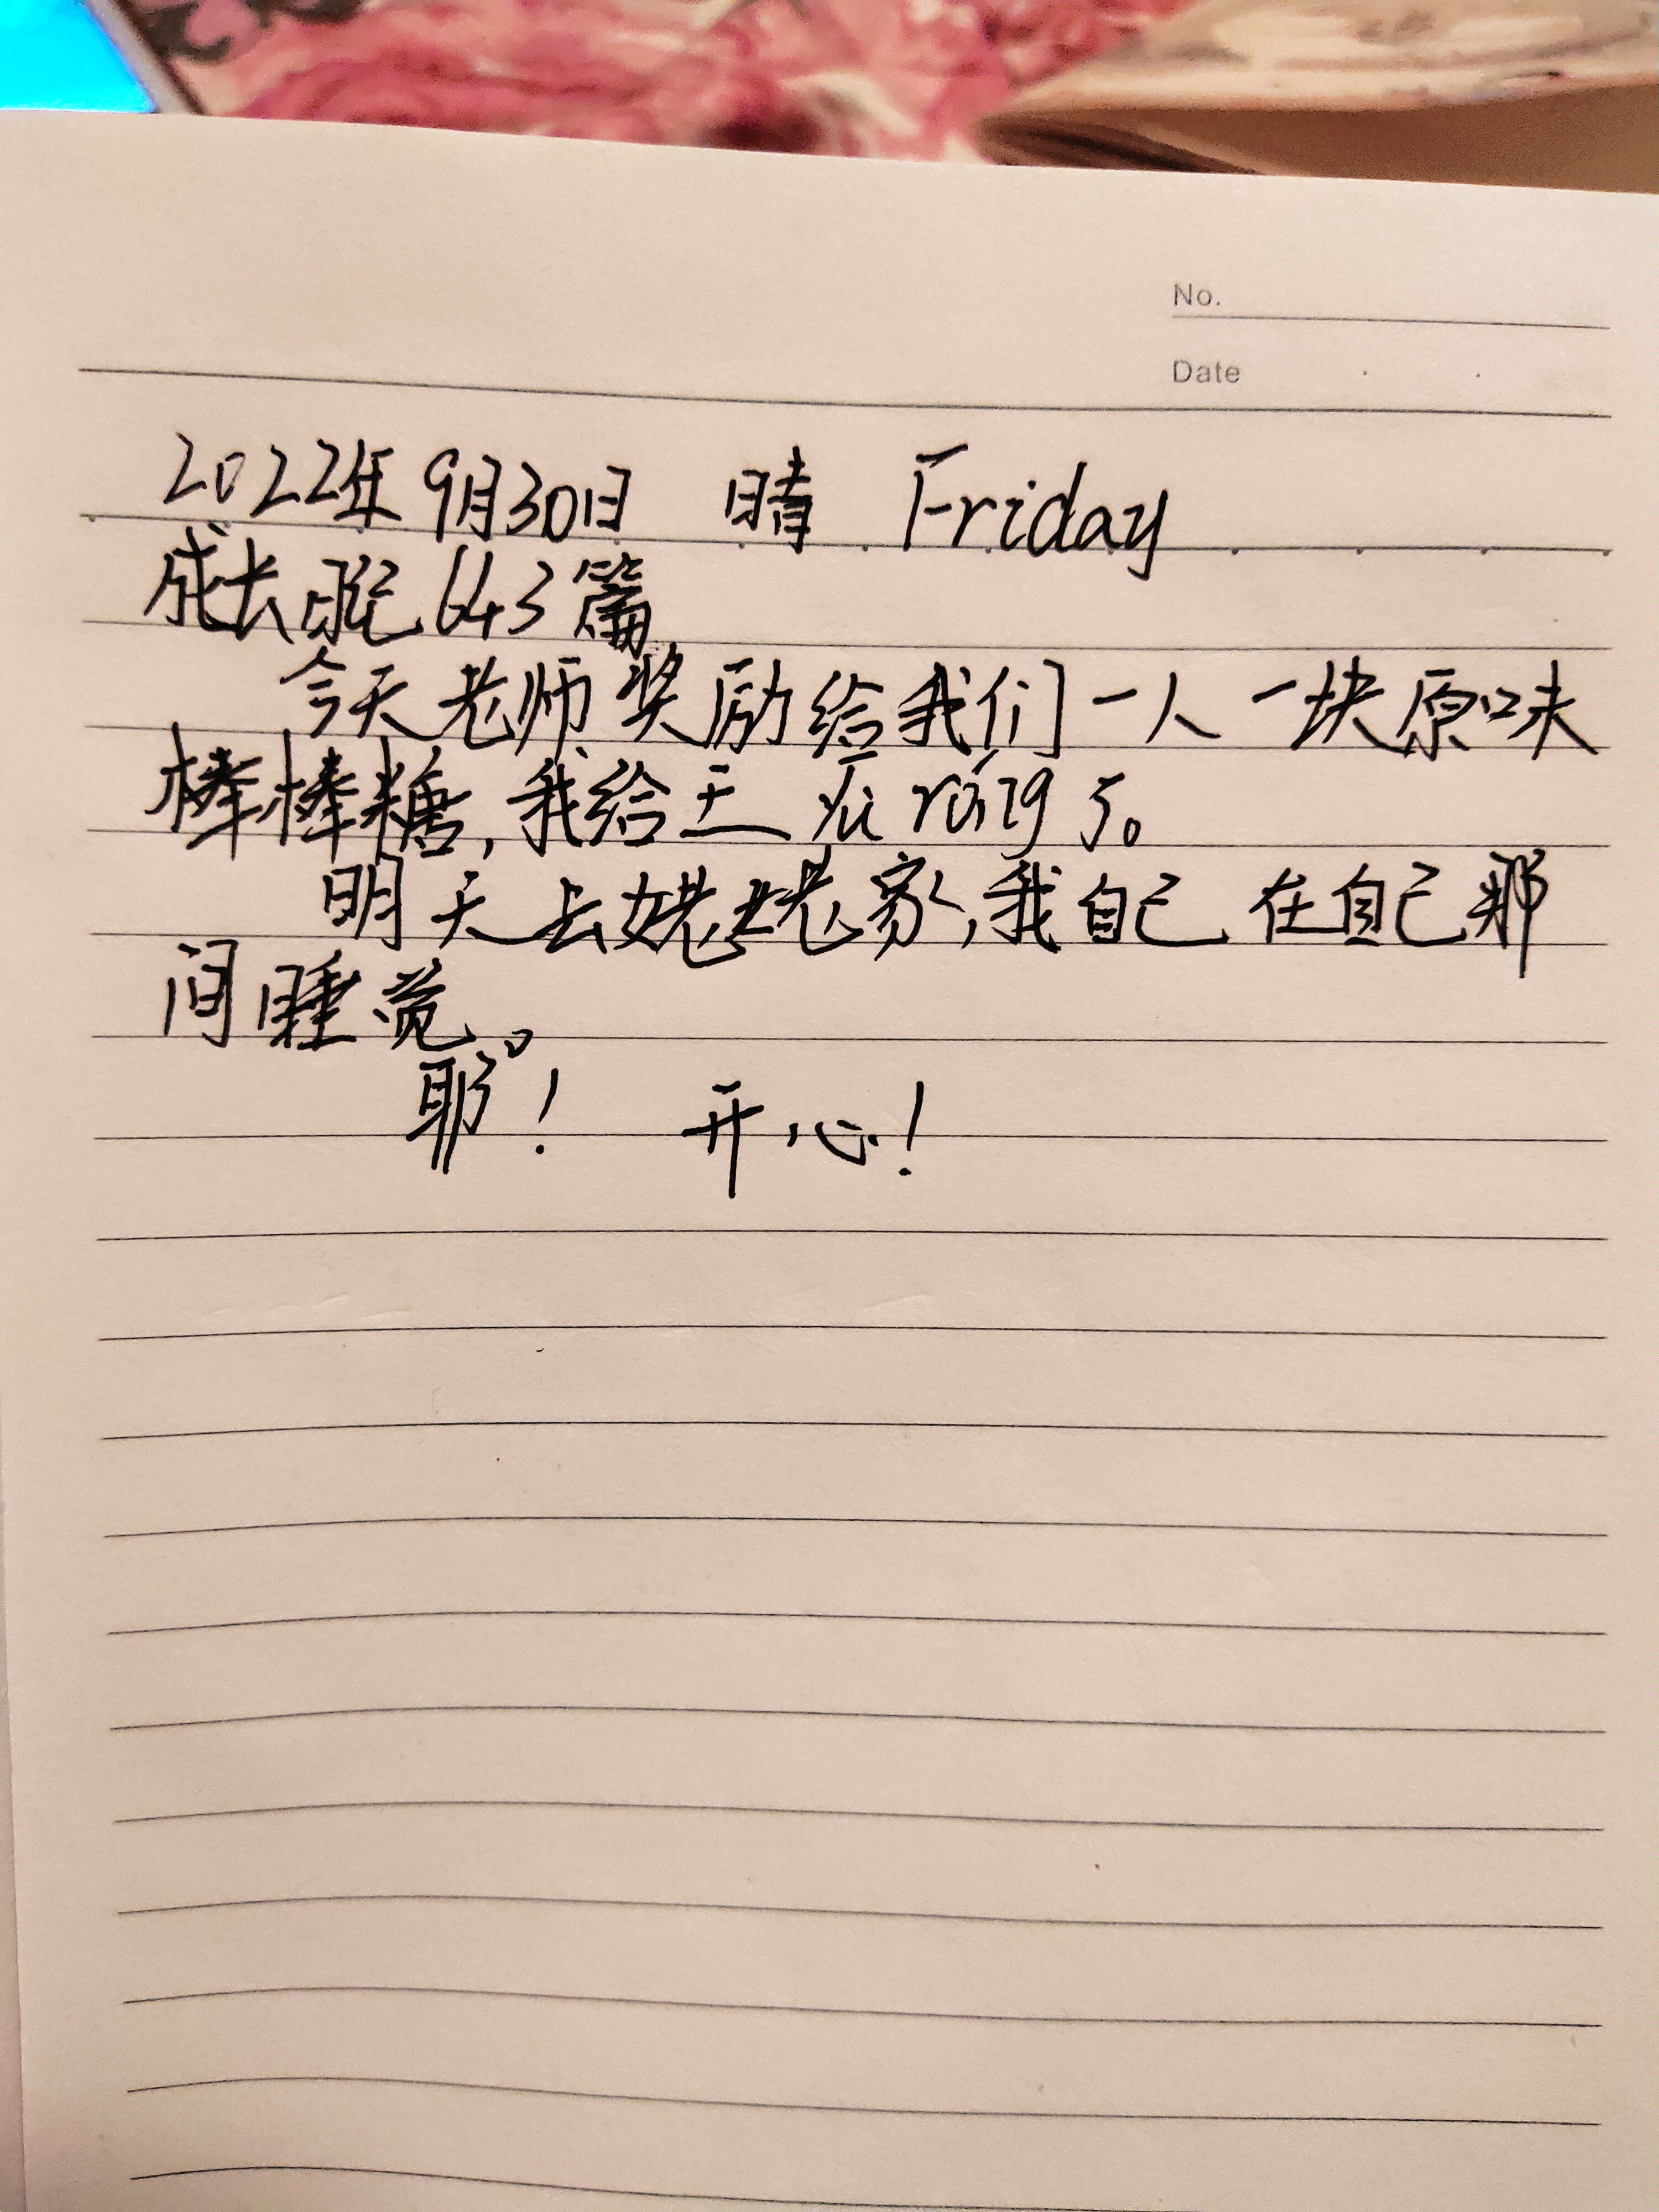 No.
Date
2022年9月30日 晴 Friday
成长记 643篇
今天老师奖励给我们一人一块原味
棒棒糖,我给王 ráng 了。
明天去姥姥家,我自己在自己那
间睡觉。
耶！ 开心！